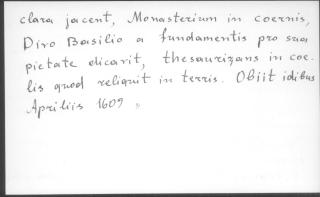 clara jacent, Monasterium in coernis,
Divo Basilio a fundamentis pro sua
pietate dicavit, thesaurizans in coe-
lis quod reliquit in terris. Obiit idibus
Apriliis 1609 "